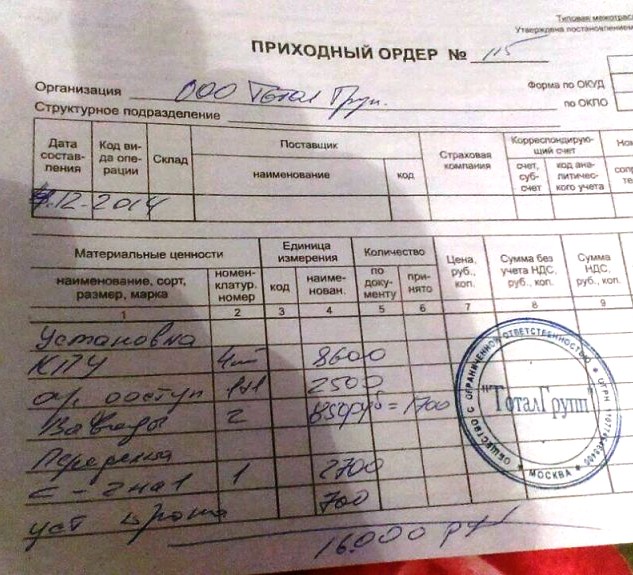 Типовая межотрас
Утверждена постановлением
ПРИХОДНЫЙ ОРДЕР № 115
Организация ООО Тотал Груп.
Форма по ОКУД
Структурное подразделение
по ОКПО
Дата состав- ления
Код ви- да опе- рации
Склад
Поставщик
наименование
код
Страховая компания
Корреспондирую- щий счет
счет, суб- счет
код ана- литичес- кого учета
Ном
сопр
те
12-2014
Материальные ценности
наименование, сорт, размер, марка
номен- клатур. номер
Единица измерения
код
наиме- нован.
Количество
по доку- менту
при- нято
Цена, руб., коп.
Сумма без учета НДС, руб., коп.
Сумма НДС, руб., коп.
1 2 3 4 5 6 7 8 9
Установка
КПУ 4шт 8600
доступ 2500
2 850руб = 1700
1 2700
уст 700
16000 руб
ОБЩЕСТВО С ОГРАНИЧЕННОЙ ОТВЕТСТВЕННОСТЬЮ
ОГРН
"ТоталГрупп"
МОСКВА